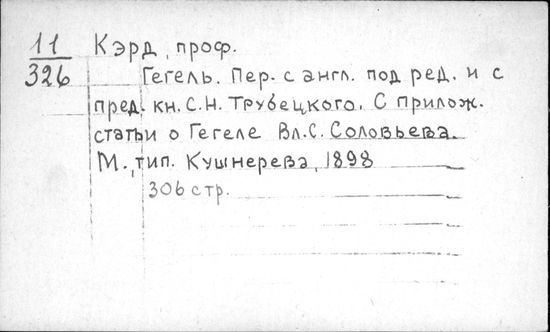 11 Кэрд, проф.
326 Гегель. Пер. с англ. под ред. и с
пред. кн. С.Н. Трубецкого. С прилож.
статьи о Гегеле Вл.С. Соловьева.
М., тип. Кушнерева, 1898
306 стр.